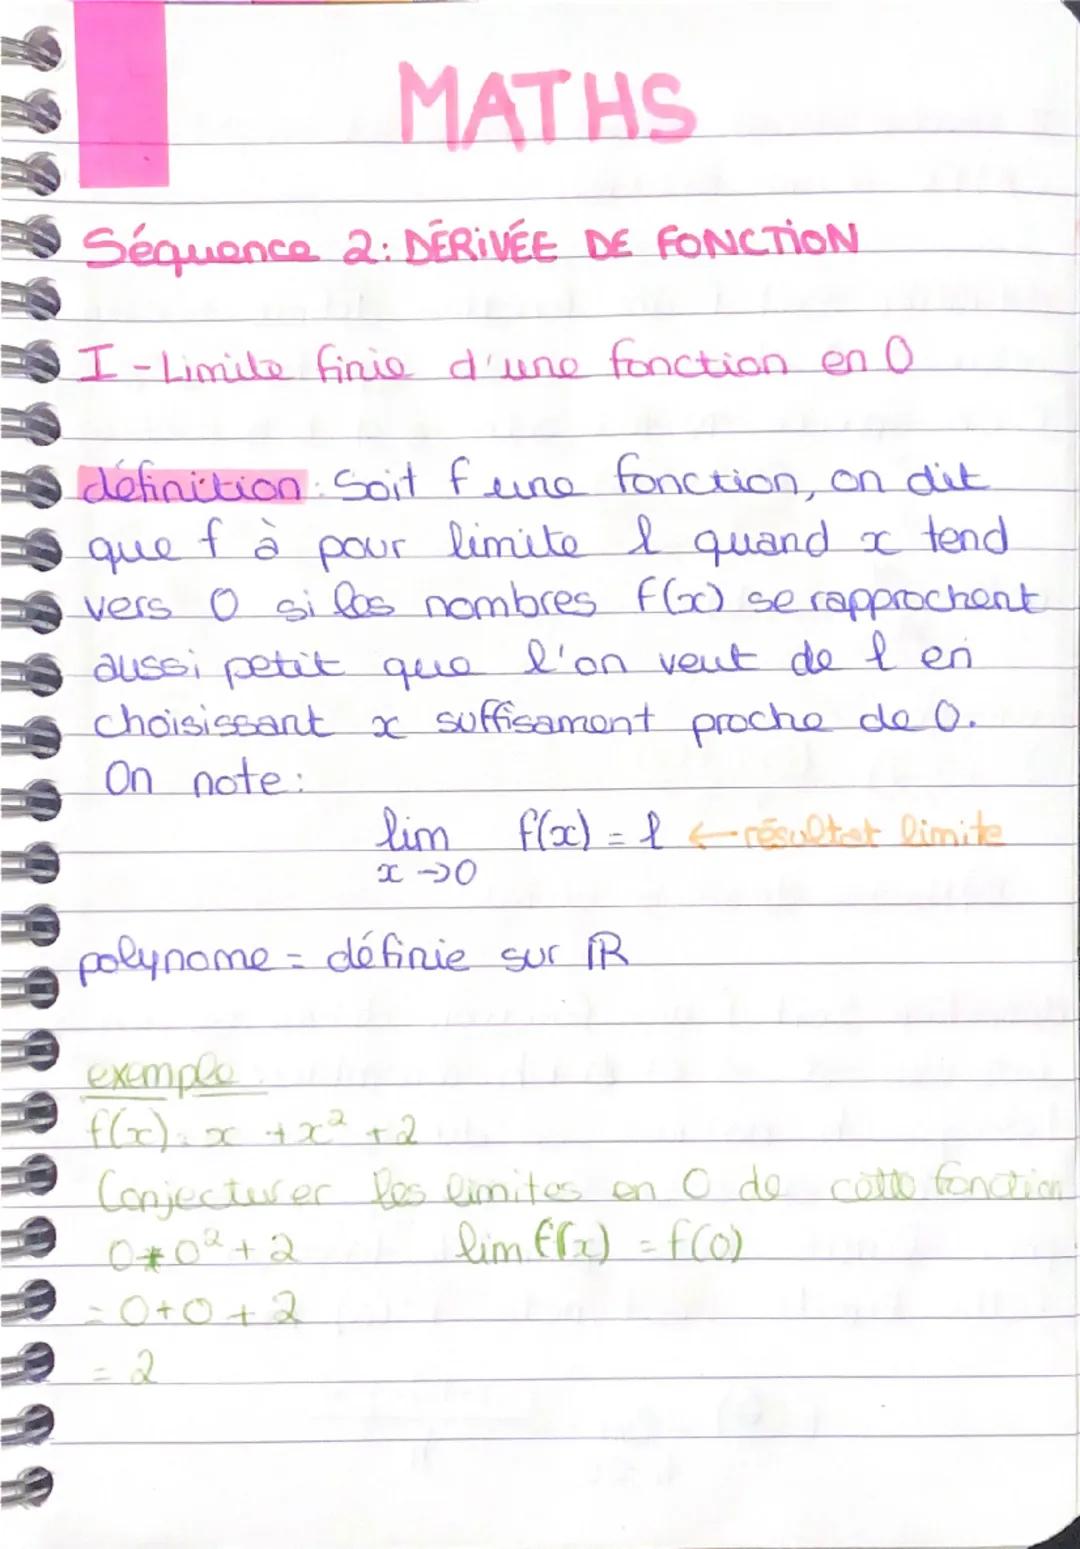 MATHS
Séquence 2: DÉRIVÉE DE FONCTION
I - Limite finie d'une fonction en 0
définition: Soit f une fonction, on dit
que f à pour limite l quand x tend
vers 0 si les nombres f(x) se rapprochent
aussi petit que l'on veut de l en
choisissant x suffisament proche de 0.
On note:
lim f(x) = l ← résultat limite
x →0
polynome = définie sur ℝ
exemple
f(x) = x + x² + 2
Conjecturer les limites en 0 de cette fonction
0+0² + 2 lim f(x) = f(0)
= 0+0 + 2
= 2